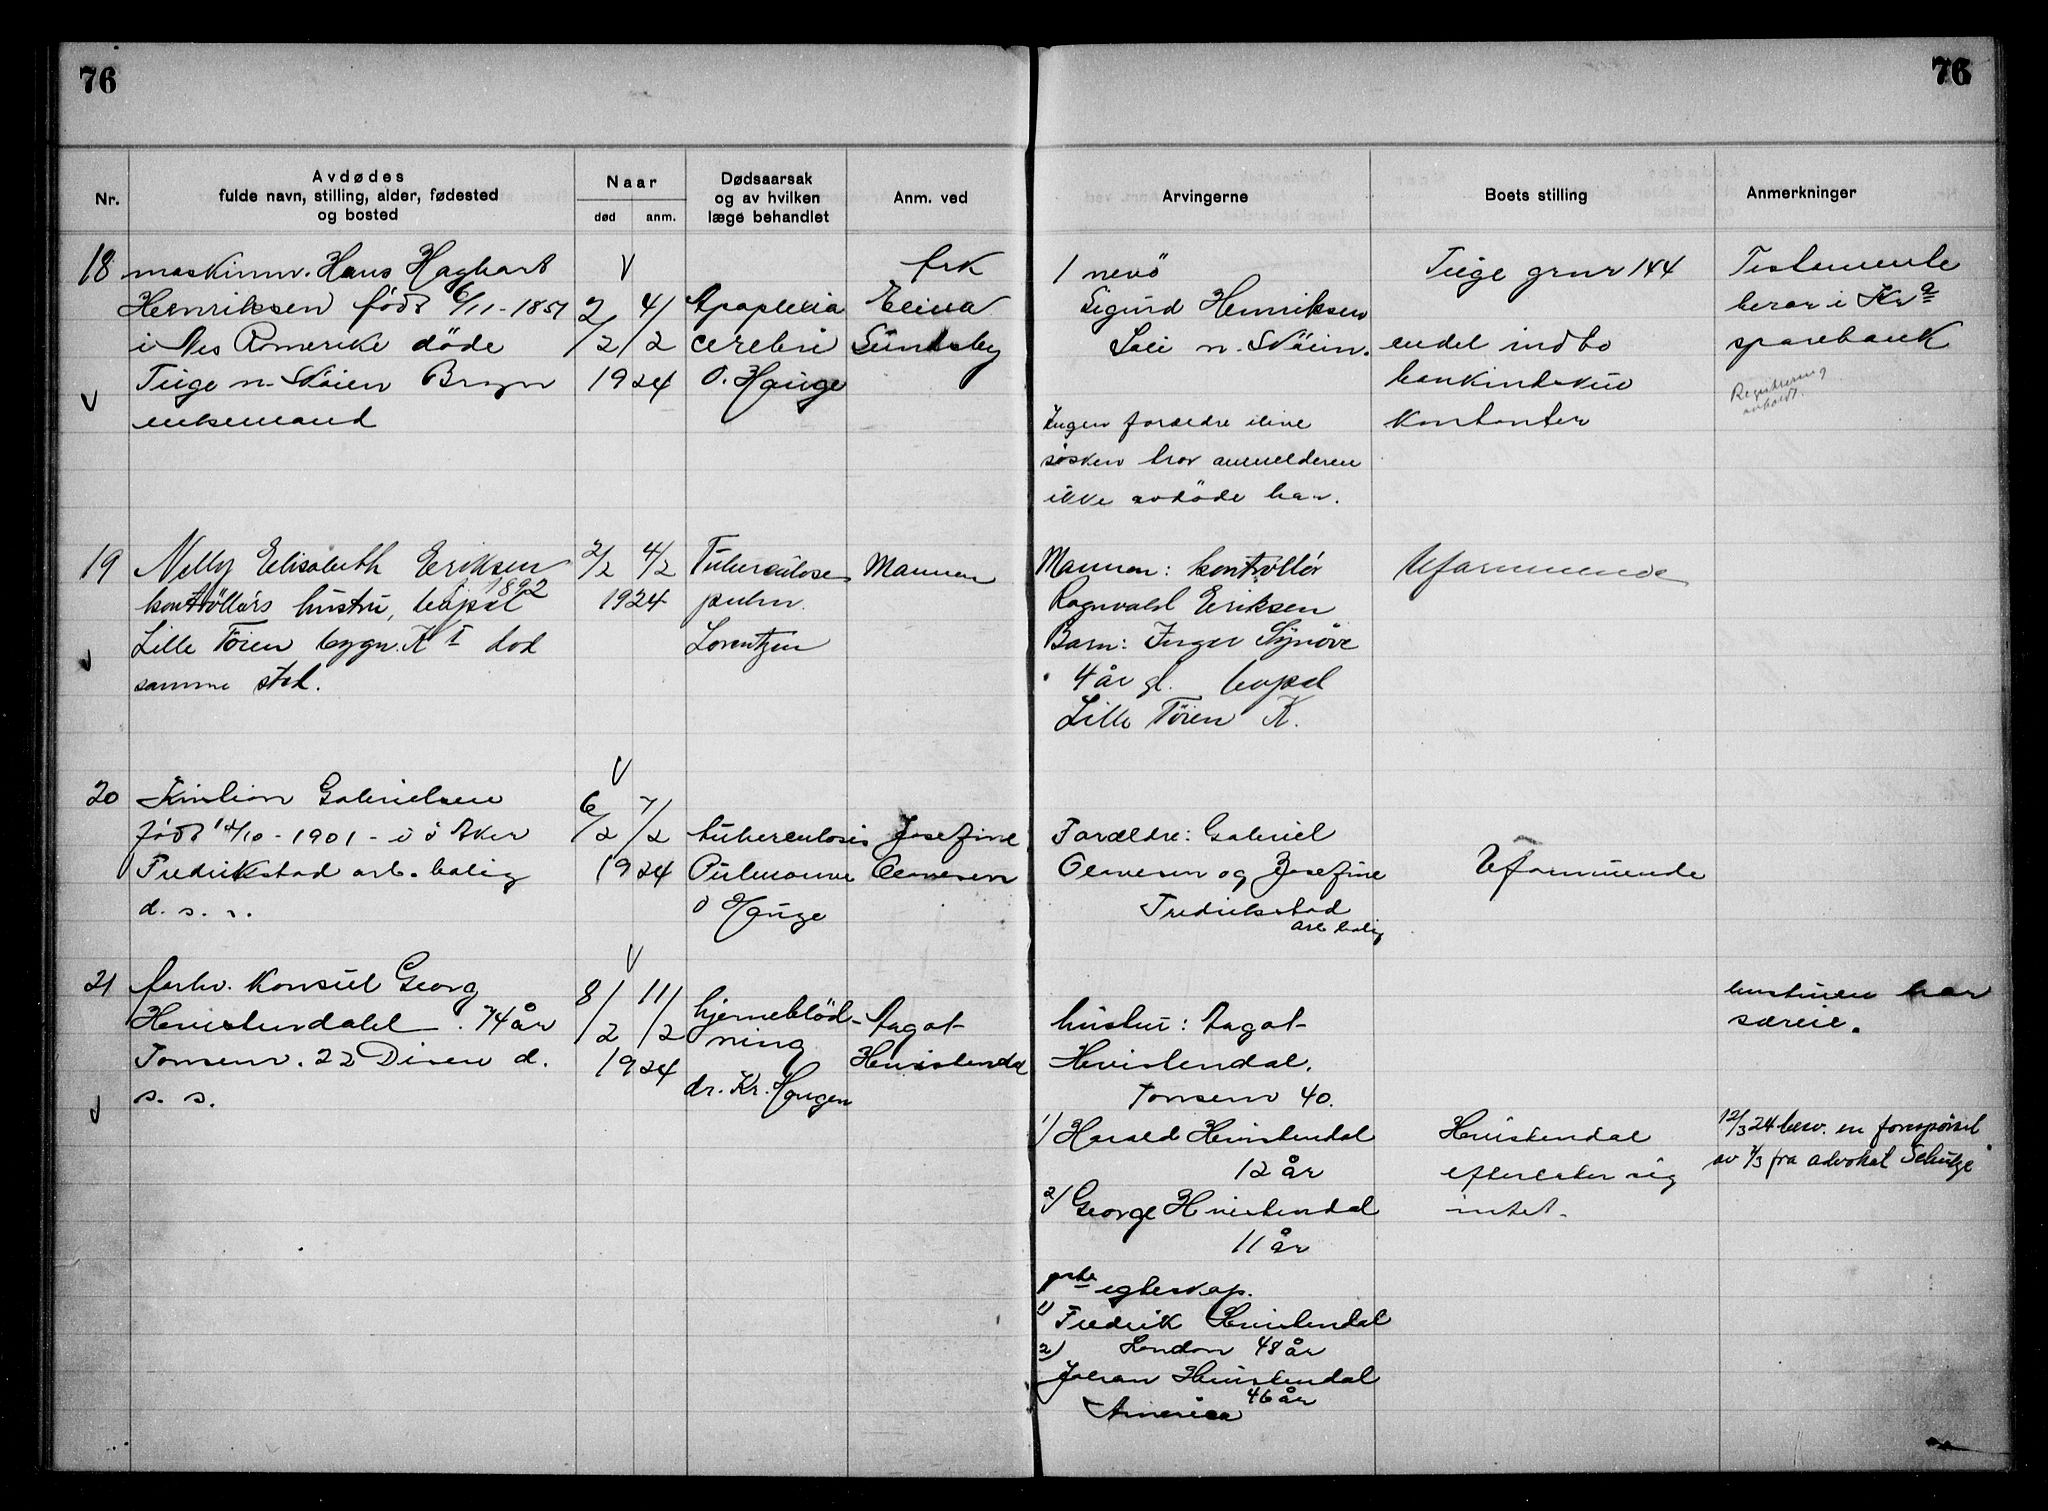 76
76
Nr.
Avdødes
fulde navn, stilling, alder, fødested
og bosted
Naar
død
anm.
Dødsaarsak
og av hvilken
læge behandlet
Anm. ved
Arvingerne
Boets stilling
Anmerkninger
18
maskinm. Hans Hagbart
Henriksen født 6/11-1851
i Nes Romerike døde
Teige n. Skøien Bryn
enkemand
2/2 4/2
1924
Apoplexia
cerebri
O. Hauge
frk
Elina
Sundsby
1 nevö
Sigurd Henriksen
n. Skøien.
Ingen forældre eller
søsken tror anmelderen
ikke avdøde har.
Teige grnr 144
endel indbo
bankindskud
kontanter
Testamente
beror i Kra
sparebank
Registrering
avholdt.
19
Nelly Elisabeth Eriksen
1892
kontrollørs hustru, bopæl
Lille Tøien bygn. K I död
samme sted.
2/2 4/2
1924
Tuberculose
pulm.
Lorentzen
Mannen
Mannen: kontrollör
Ragnvald Eriksen
Barn: Inger Synöve
4 år gl. bopæl
Lille Töien K.
Uformuende
20
Gabrielsen
född 14/10-1901-i ö Aker
Fredrikstad arb. bolig
d. s. s.
6/2 7/2
1924
tuberculosis
Pulmonum
O Hauge
Josefine
Olavesen
Forældre: Gabriel
Olavesen og Josefine
Fredrikstad
arb bolig
Uformuende
21
forhv. Konsul Georg
Hvistendahl. 74 år
Tonsenv. 22 Disen d.
s. s.
8/2 11/2
1924
hjerneblöd-
ning
dr. Kr. Haugen
Aagot
Hvistendal
hustru: Aagot
Hvistendal.
Tonsenv 40.
1) Harald Hvistendal
12 år
2) George Hvistendal
11 år
egteskap.
1) Fredrik Hvistendal
London 48 år
2)
Johan Hvistendal
46 år
America
Hvistendal
efterlater sig
intet.
hustruen har
særeie.
12/3 24 besv. en forespörsel
av 7/3 fra advokat Schutze